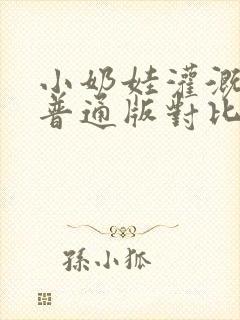 小奶娃灌溉
普通版對比
孫小狐